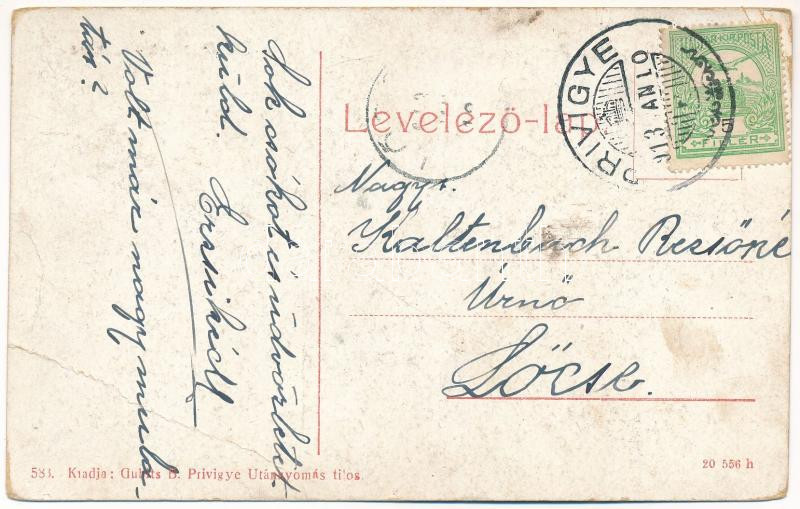 Levelező-lap
PRIVIGYE
913 JAN 10
MAGYAR KIR. POSTA
5
FILLÉR
Nagys.
Kaltenbach Rezsőné
Úrnő
Lőcse.
Sok csókot és üdvözletet
küld. Erzsikéd
Volt már nagy mula-
tás?
584. Kiadja: Gubits B. Privigye Utánnyomás tilos.
20 556 h